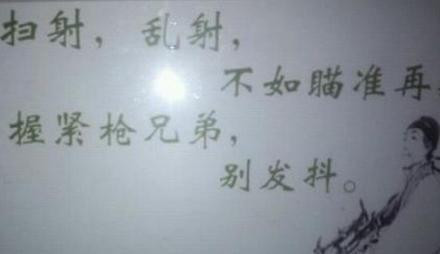 扫射，乱射，
不如瞄准再
握紧枪兄弟，
别发抖。